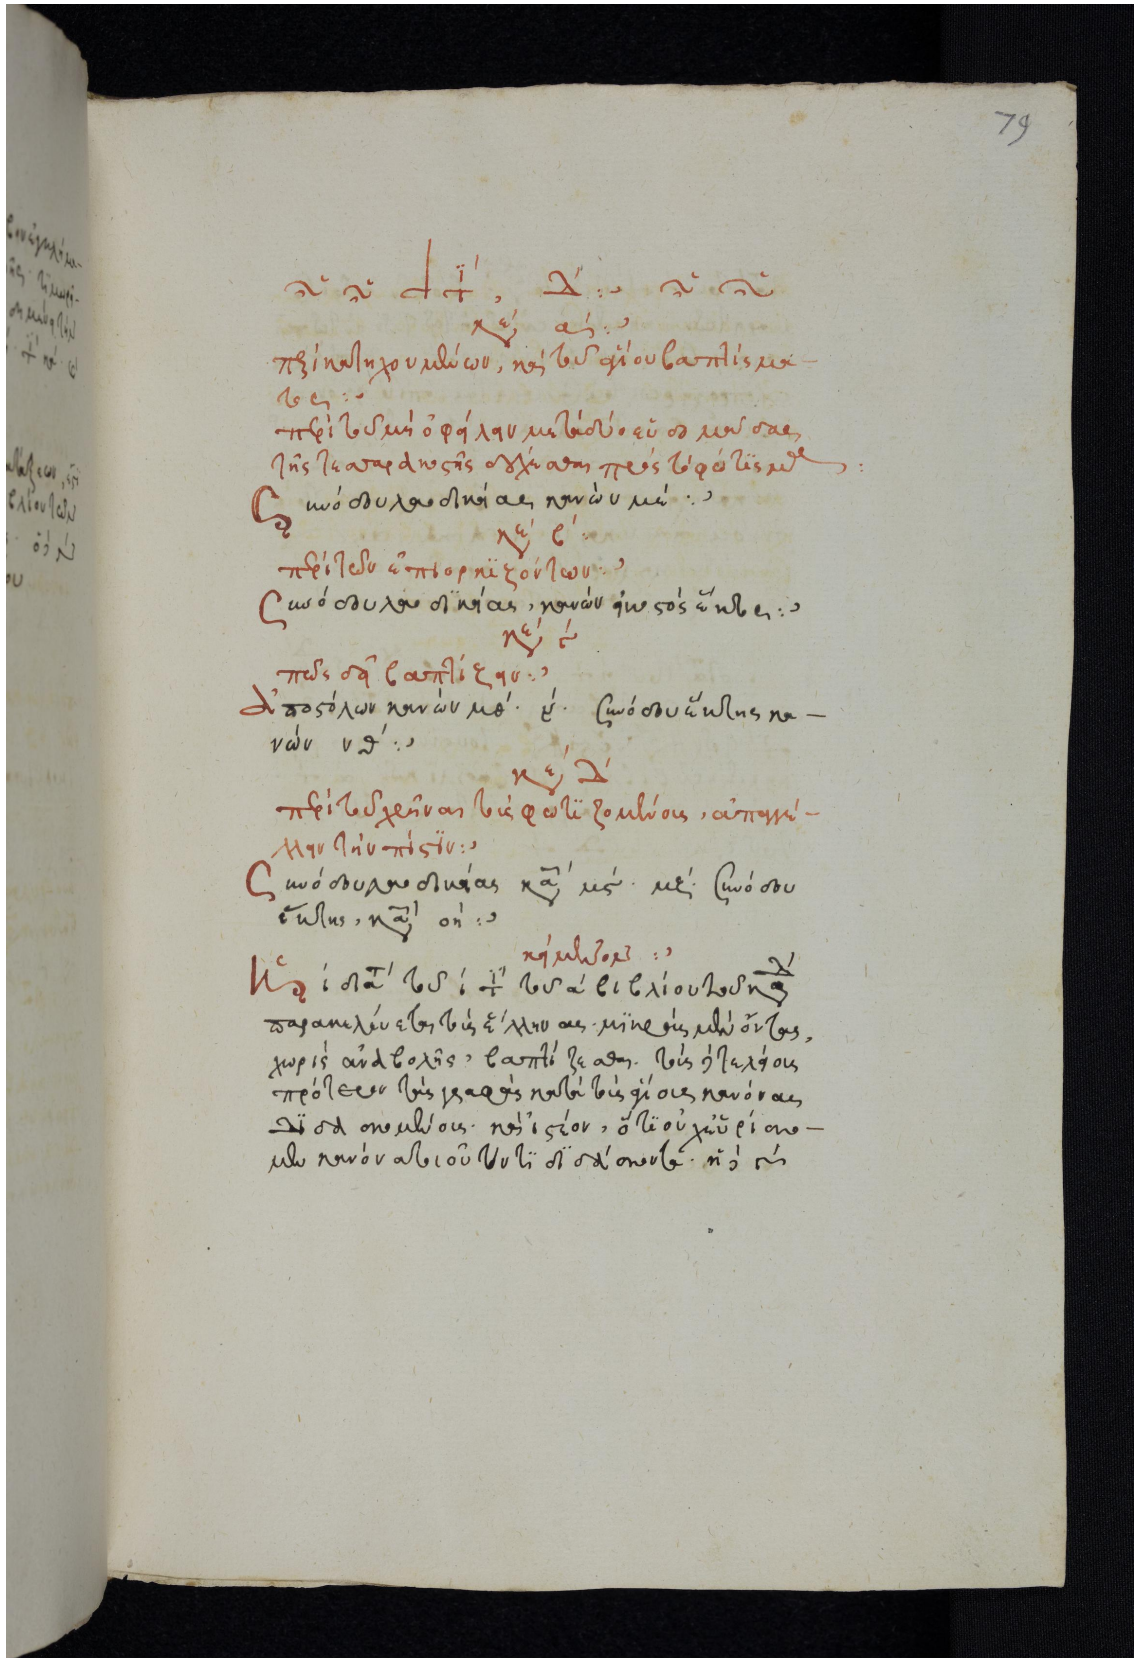 79
τί̈, Δ´ :
κε´ α´ :
περὶ κατηχουμένων, καὶ τοῦ ἁγίου βαπτίσμα-
τος :
περὶ τοῦ μὴ ὀφείλειν μετὰ δύο ἑβδομάδας
τῆς τεσσαρακοστῆς δέχεσθαι πρὸς τὸ φώτισμα :
Συνόδου λαοδικείας κανὼν με´ :
κε´ β´
περὶ τῶν ἐπιορκιζόντων :
Συνόδου λαοδικείας, κανὼν εἰκοστὸς ἕκτος :
κε´ γ´
πῶς δεῖ βαπτίζειν :
Ἀποστόλων κανὼν μθ´. ν´. Συνόδου ἕκτης κα-
νὼν νθ´ :
κε´ Δ´
περὶ τοῦ χρῆναι τοὺς φωτιζομένους, ἀπαγγέ-
λλειν τὴν πίστιν :
Συνόδου λαοδικείας κα´ μς´. μζ´. Συνόδου
ἕκτης, κα´ οη´ :
κείμενον :
Ἡ διατ´ τοῦ τί´ τοῦ α´ βιβλίου τοῦ κώδ´
παρακελεύεται τοὺς ἕλληνας. μικροὺς μὲν ὄντας,
χωρὶς ἀναβολῆς, βαπτίζεσθαι. τοὺς δὲ τελείους
πρότερον τὰς γραφὰς κατὰ τοὺς θείους κανόνας
διδασκομένους. καὶ ἰστέον, ὅτι οὐχ εὑρίσκο-
μεν κανόνα τοιοῦτόν τι διδάσκοντα.